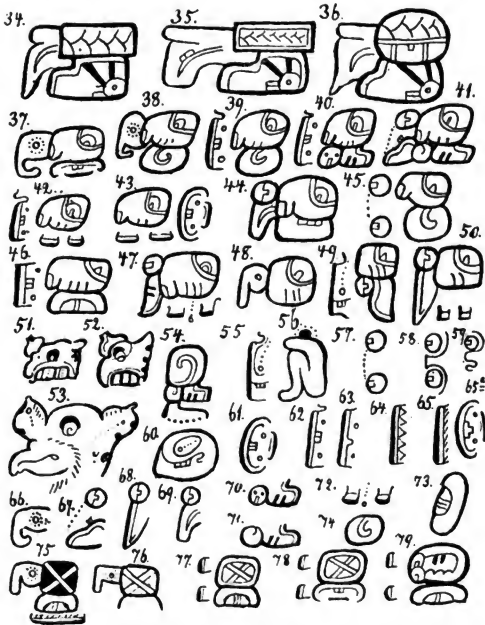 34. 35. 36.
37. 38. 39. 40. 41.
42. 43. 44. 45.
46. 47. 48. 49. 50.
51. 52. 54. 55. 56. 57. 58. 59.
53. 60. 61. 62. 63. 64. 65. 65a
66. 67. 68. 69. 70. 72. 73.
71. 74
75 76. 77. 78 79.